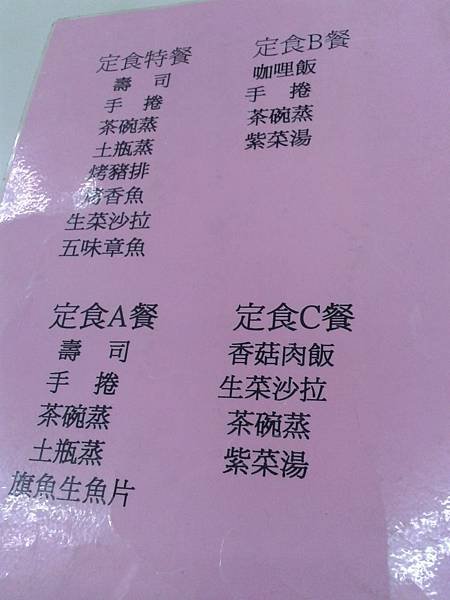 定食特餐
壽司
手捲
茶碗蒸
土瓶蒸
烤豬排
烤香魚
生菜沙拉
五味章魚
定食B餐
咖哩飯
手捲
茶碗蒸
紫菜湯
定食A餐
壽司
手捲
茶碗蒸
土瓶蒸
旗魚生魚片
定食C餐
香菇肉飯
生菜沙拉
茶碗蒸
紫菜湯